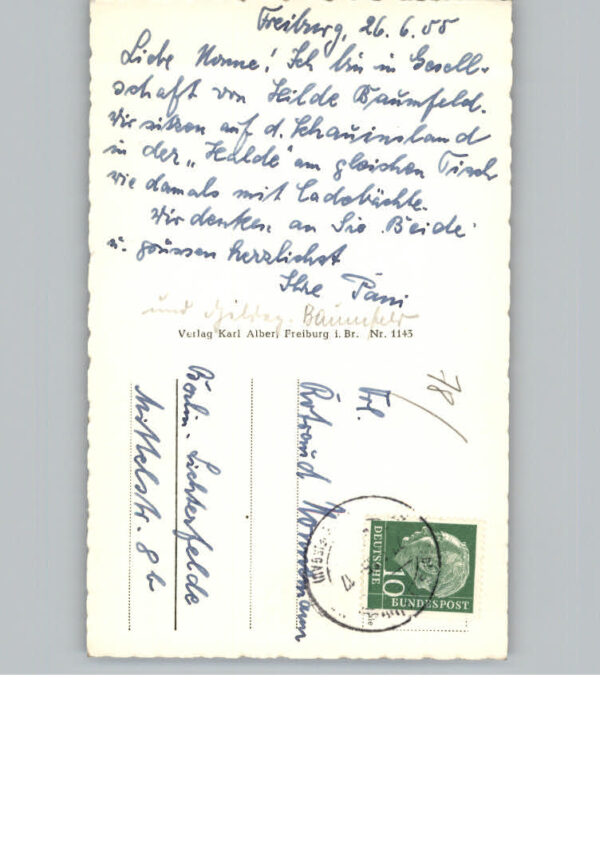 Freiburg, 26.6.55
Liebe Nonne! Ich bin in Gesell-
schaft von Hilde Baumfeld.
Wir sitzen auf d. Schauinsland
in der „Halde" am gleichen Tisch
wie damals mit
Wir denken an Sie Beide
u. grüssen herzlichst
Ihre Päni
und Hildeg. Baumfeld
Verlag Karl Alber, Freiburg i. Br. Nr. 1143
78
Frl.
Rotraud
Berlin-Lichterfelde
Mittelstr. 8b
DEUTSCHE
10
BUNDESPOST